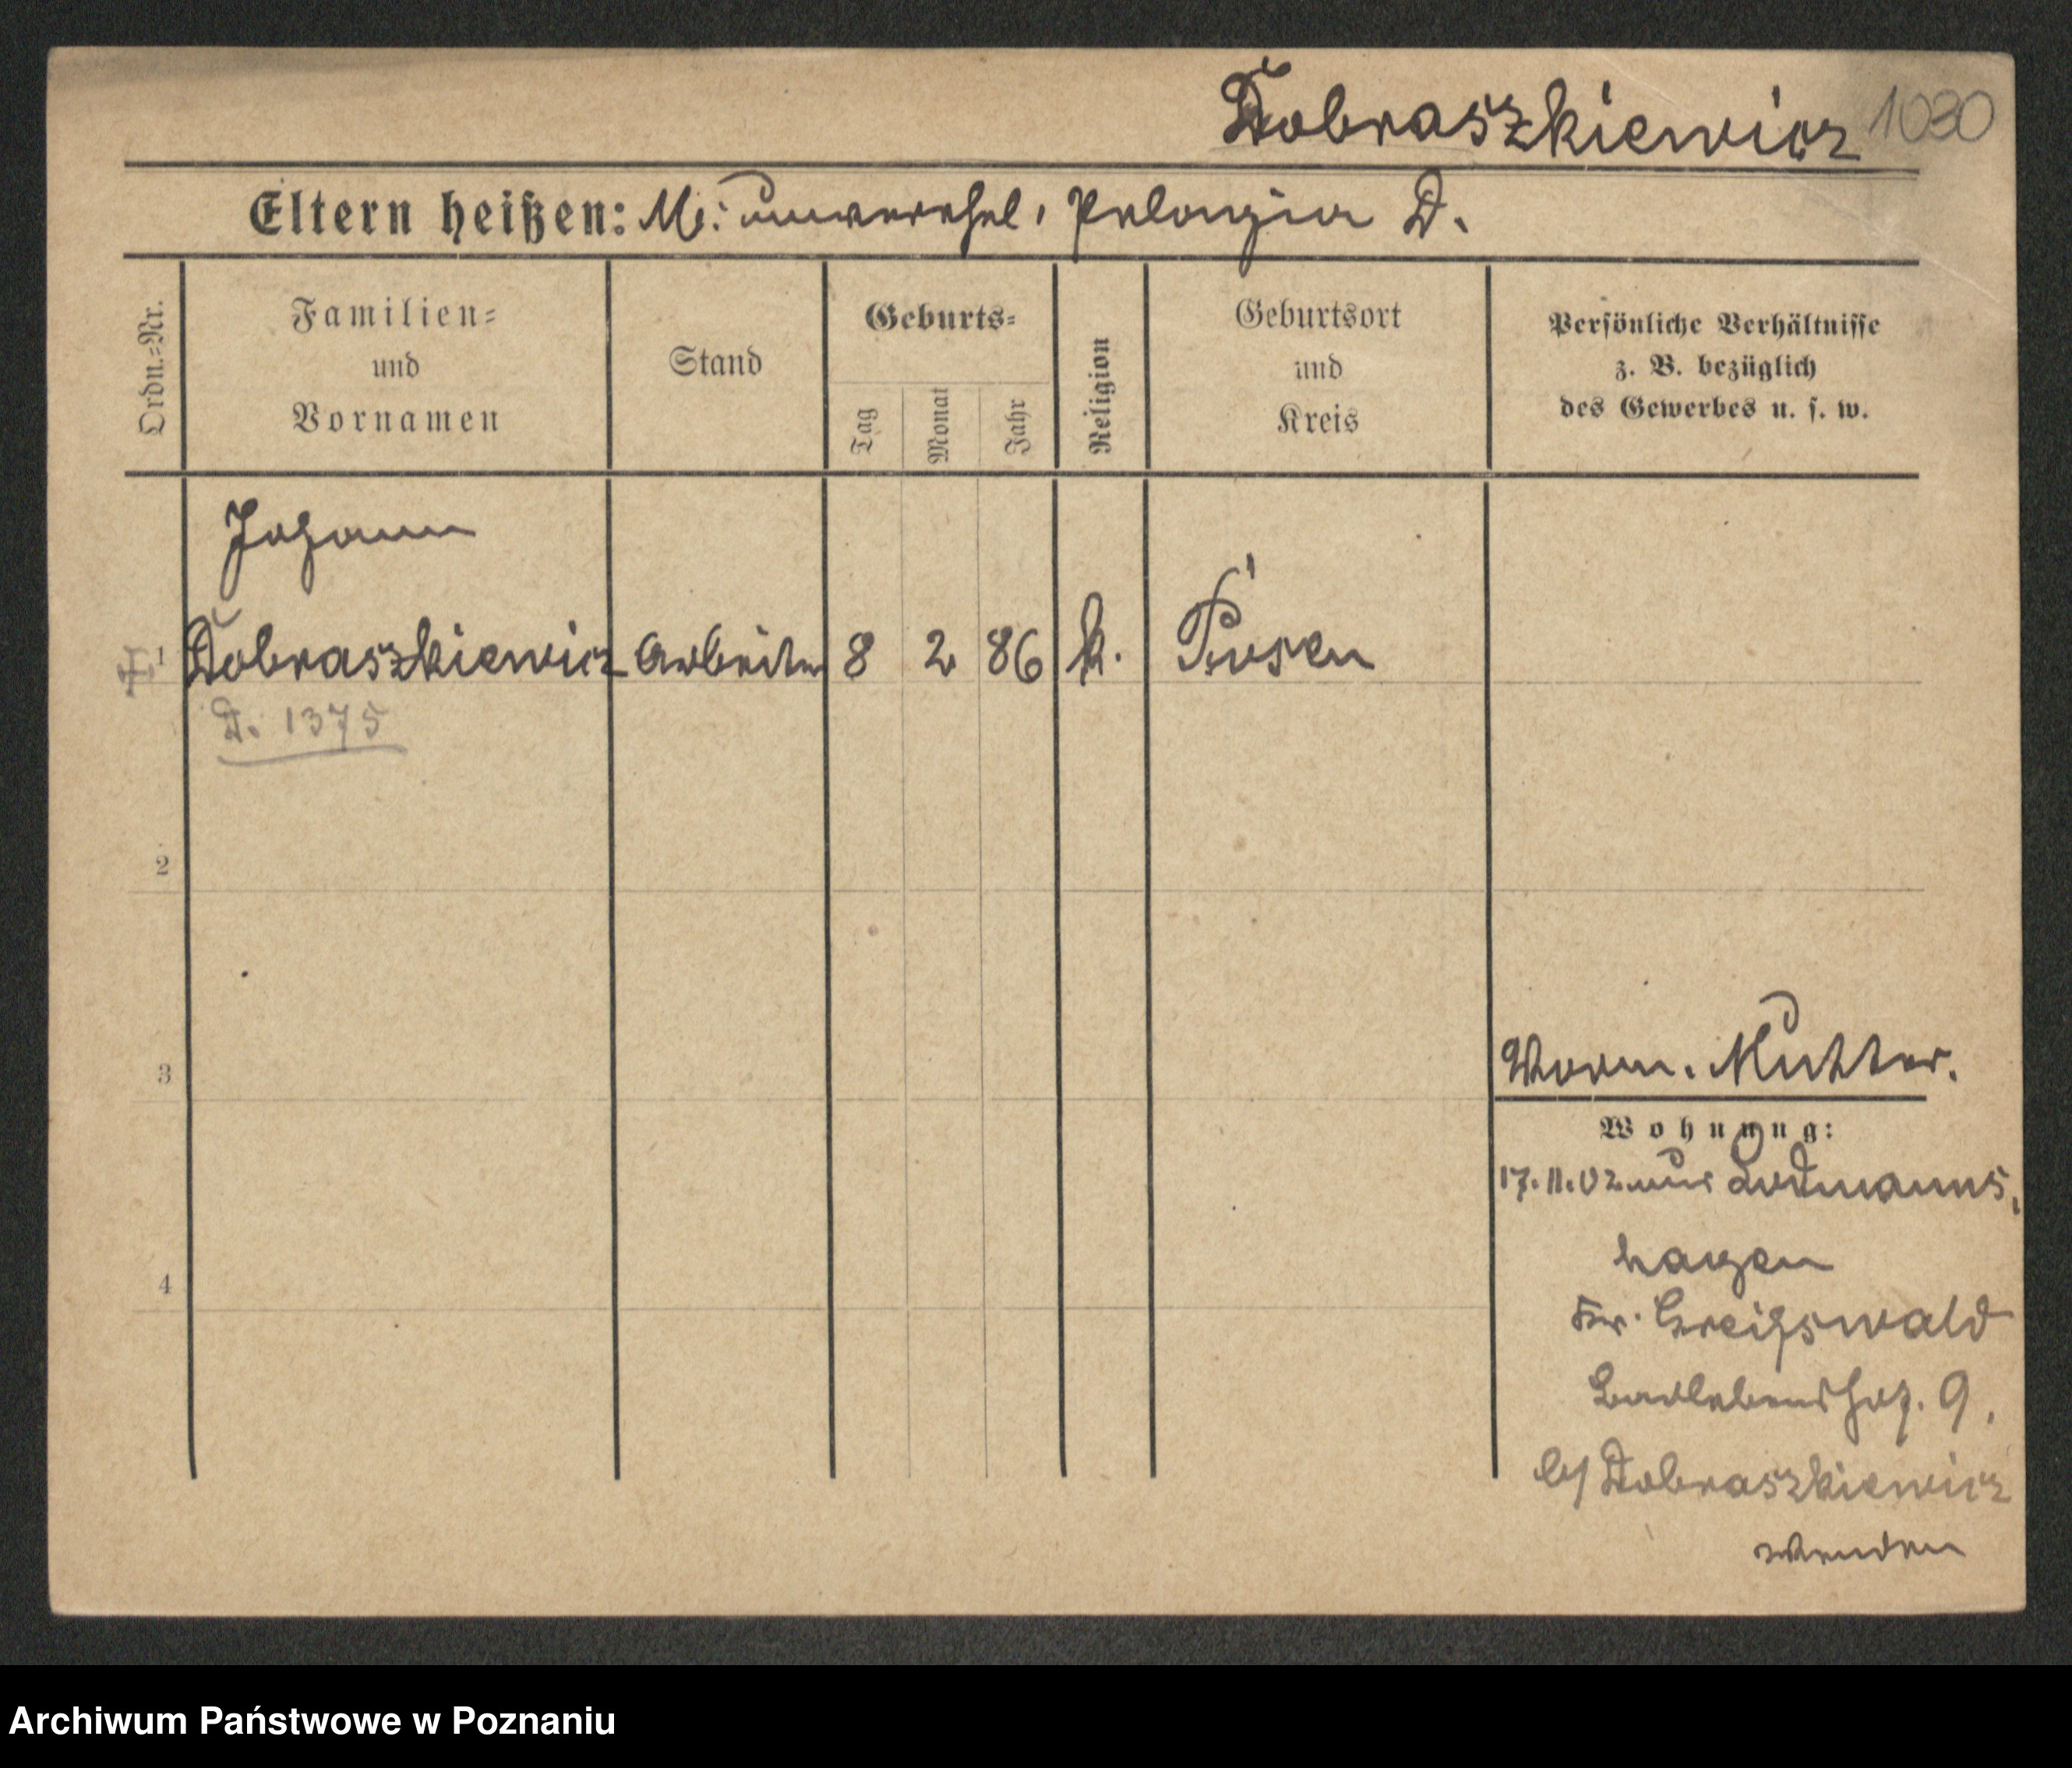 Dobraszkiewicz 1080
Eltern heißen: M: unverehel. Pelagia D.
Ordn.=Nr.
Familien=
und
Vornamen
Stand
Geburts=
Tag
Monat
Jahr
Religion
Geburtsort
und
Kreis
Persönliche Verhältnisse
z. B. bezüglich
des Gewerbes u. s. w.
Johann
1 Dobraszkiewicz Arbeiter 8 2 86 k. Posen
D. 1375
2
3
4
Vorm. Mutter.
Wohnung:
17.11.02 aus Lodmanns
hagen
Kr. Greifswald
9.
b/ Dobraszkiewicz
wenden
Archiwum Państwowe w Poznaniu